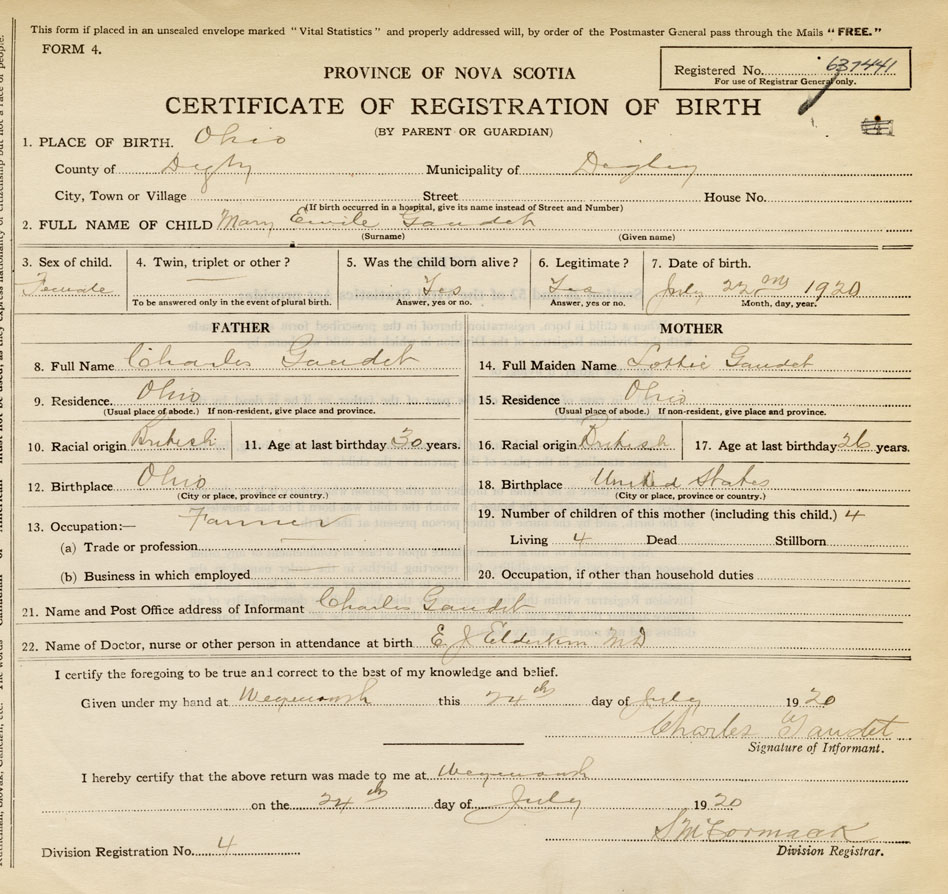 This form if placed in an unsealed envelope marked "Vital Statistics" and properly addressed will, by order of the Postmaster General pass through the Mails "FREE."
FORM 4.
Registered No. 637441
For use of Registrar General only.
PROVINCE OF NOVA SCOTIA
CERTIFICATE OF REGISTRATION OF BIRTH
(BY PARENT OR GUARDIAN)
1. PLACE OF BIRTH. Ohio
County of Digby Municipality of Digby
City, Town or Village Street House No.
(If birth occurred in a hospital, give its name instead of Street and Number)
2. FULL NAME OF CHILD Mary Emile Gaudet
(Surname) (Given name)
3. Sex of child. 4. Twin, triplet or other? 5. Was the child born alive? 6. Legitimate? 7. Date of birth.
Female Yes Yes July 22nd 1920
To be answered only in the event of plural birth. Answer, yes or no. Answer, yes or no. Month, day, year.
FATHER MOTHER
8. Full Name Charles Gaudet 14. Full Maiden Name Lottie Gaudet
9. Residence. Ohio 15. Residence Ohio
(Usual place of abode.) If non-resident, give place and province. (Usual place of abode.) If non-resident, give place and province.
10. Racial origin British 11. Age at last birthday 30 years. 16. Racial origin British 17. Age at last birthday 26 years.
12. Birthplace Ohio 18. Birthplace United States
(City or place, province or country.) (City or place, province or country.)
13. Occupation:— Farmer 19. Number of children of this mother (including this child.) 4
(a) Trade or profession Living 4 Dead Stillborn
(b) Business in which employed 20. Occupation, if other than household duties
21. Name and Post Office address of Informant Charles Gaudet
22. Name of Doctor, nurse or other person in attendance at birth E J Elderkin MD
I certify the foregoing to be true and correct to the best of my knowledge and belief.
Given under my hand at Weymouth this 24th day of July 1920
Charles Gaudet
Signature of Informant.
I hereby certify that the above return was made to me at Weymouth
on the 24th day of July 1920
S McCormack
Division Registration No. 4 Division Registrar.